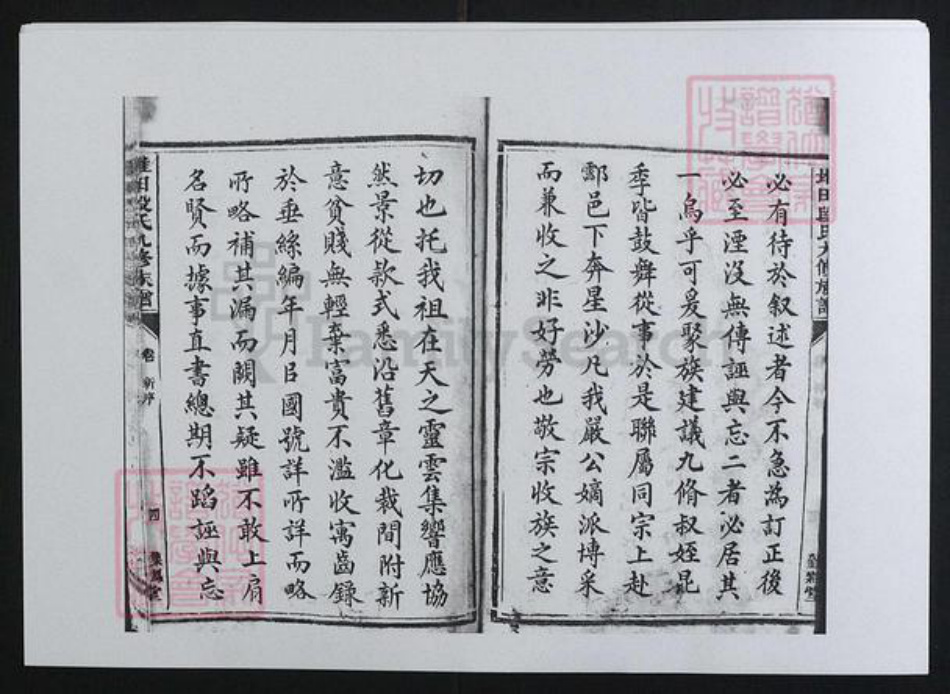 必有待於叙述者今不急為訂正後
必至湮沒無傳誣與忘二者必居其
一烏乎可爰聚族建議九脩叔姪昆
季皆鼓舞從事於是聯屬同宗上赴
酃邑下奔星沙凡我嚴公嫡派博采
而兼收之非好勞也敬宗收族之意
切也托我祖在天之靈雲集響應協
然景從款式悉沿舊章化裁間附新
意貧賤無輕棄富貴不濫收寓齒錄
於垂絲編年月㠯國號詳所詳而略
所略補其漏而闕其疑雖不敢上肩
名賢而據事直書總期不蹈誣與忘
段氏九修族譜
卷 新序
四
FamilySearch